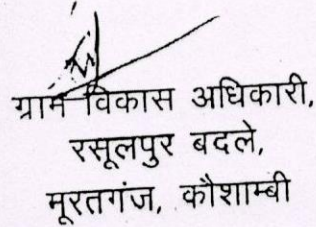 ग्राम विकास अधिकारी,
रसूलपुर बदले,
मूरतगंज, कौशाम्बी